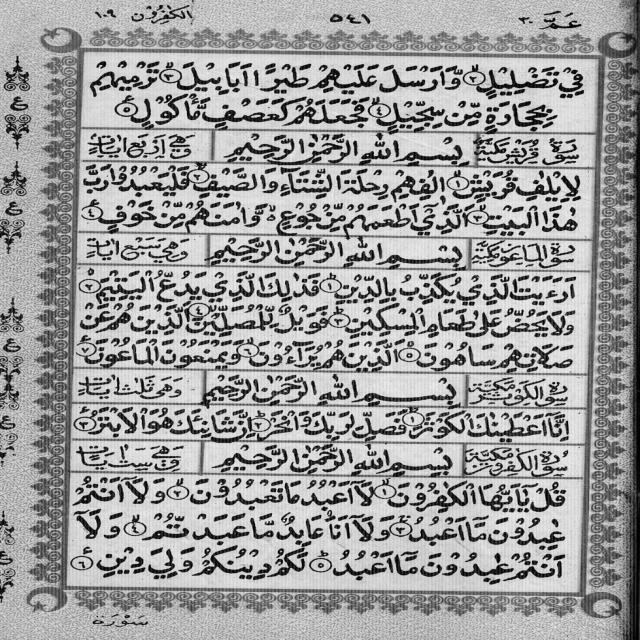 عَمَّ ٣٠
٥٤١
الكٰفِرُوْن ١٠٩
فِيْ تَضْلِيْلٍ ۙ﴿۲﴾ وَّاَرْسَلَ عَلَيْهِمْ طَيْرًا اَبَابِيْلَ ۙ﴿۳﴾ تَرْمِيْهِمْ
بِحِجَارَةٍ مِّنْ سِجِّيْلٍ ۙ﴿۴﴾ فَجَعَلَهُمْ كَعَصْفٍ مَّاْكُوْلٍ ﴿۵﴾
سورة قريش مكية بِسْمِ اللّٰهِ الرَّحْمٰنِ الرَّحِيْمِ وهي اربع ايات
لِاِيْلٰفِ قُرَيْشٍ ۙ﴿۱﴾ اٖلٰفِهِمْ رِحْلَةَ الشِّتَآءِ وَالصَّيْفِ ۚ﴿۲﴾ فَلْيَعْبُدُوْا رَبَّ
هٰذَا الْبَيْتِ ۙ﴿۳﴾ الَّذِيْٓ اَطْعَمَهُمْ مِّنْ جُوْعٍ ۙ وَّاٰمَنَهُمْ مِّنْ خَوْفٍ ﴿۴﴾
سورة الماعون مكية بِسْمِ اللّٰهِ الرَّحْمٰنِ الرَّحِيْمِ وهي سبع ايات
اَرَءَيْتَ الَّذِيْ يُكَذِّبُ بِالدِّيْنِ ﴿۱﴾ فَذٰلِكَ الَّذِيْ يَدُعُّ الْيَتِيْمَ ۙ﴿۲﴾
وَلَا يَحُضُّ عَلٰى طَعَامِ الْمِسْكِيْنِ ﴿۳﴾ فَوَيْلٌ لِّلْمُصَلِّيْنَ ۙ﴿۴﴾ الَّذِيْنَ هُمْ عَنْ
صَلَاتِهِمْ سَاهُوْنَ ۙ﴿۵﴾ الَّذِيْنَ هُمْ يُرَآءُوْنَ ۙ﴿۶﴾ وَيَمْنَعُوْنَ الْمَاعُوْنَ ﴿۷﴾
سورة الكوثر مكية بِسْمِ اللّٰهِ الرَّحْمٰنِ الرَّحِيْمِ وهي ثلث ايات
اِنَّآ اَعْطَيْنٰكَ الْكَوْثَرَ ﴿۱﴾ فَصَلِّ لِرَبِّكَ وَانْحَرْ ﴿۲﴾ اِنَّ شَانِئَكَ هُوَ الْاَبْتَرُ ﴿۳﴾
سورة الكفرون مكية بِسْمِ اللّٰهِ الرَّحْمٰنِ الرَّحِيْمِ وهي ست ايات
قُلْ يٰٓاَيُّهَا الْكٰفِرُوْنَ ۙ﴿۱﴾ لَآ اَعْبُدُ مَا تَعْبُدُوْنَ ۙ﴿۲﴾ وَلَآ اَنْتُمْ
عٰبِدُوْنَ مَآ اَعْبُدُ ۚ﴿۳﴾ وَلَآ اَنَا عَابِدٌ مَّا عَبَدْتُّمْ ۙ﴿۴﴾ وَلَآ
اَنْتُمْ عٰبِدُوْنَ مَآ اَعْبُدُ ﴿۵﴾ لَكُمْ دِيْنُكُمْ وَلِيَ دِيْنِ ﴿۶﴾
سورة